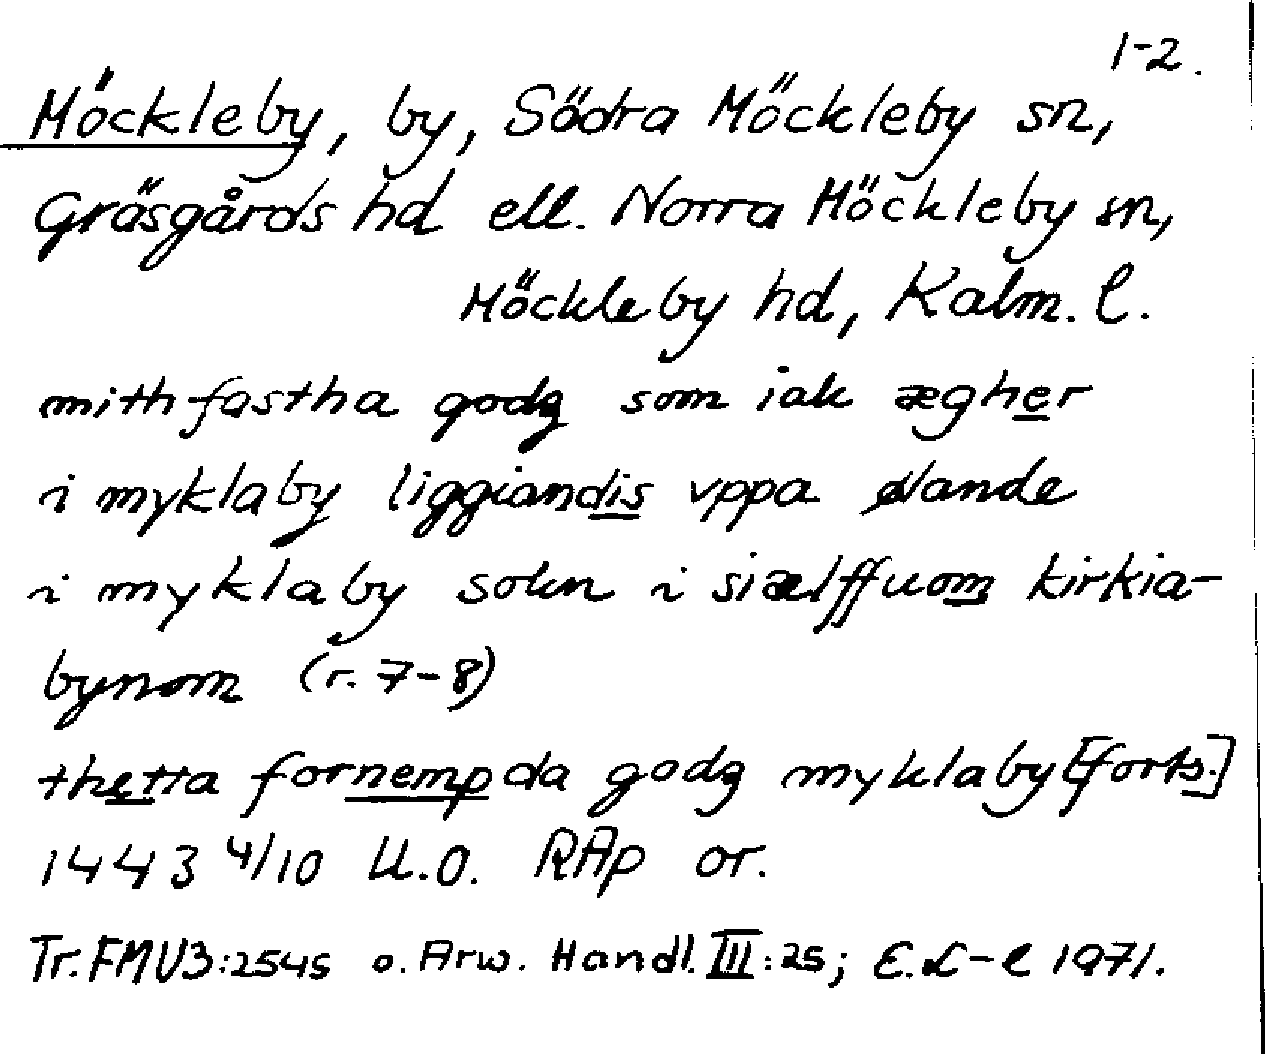 1-2.
Möckleby, by, Södra Möckleby sn,
Gräsgårds hd ell. Norra Möckleby sn,
Möckleby hd, Kalm. l.
mith fastha godz som iak ægher
i myklaby liggiandis vppa ølande
i myklaby sokn i siælffuom kirkia-
bynom (r. 7-8)
thetta fornempda godz myklaby [forts.]
1443 4/10 U.O. RAp or.
Tr. FMU3:2545 o. Arw. Handl. III:25; E.L-l 1971.